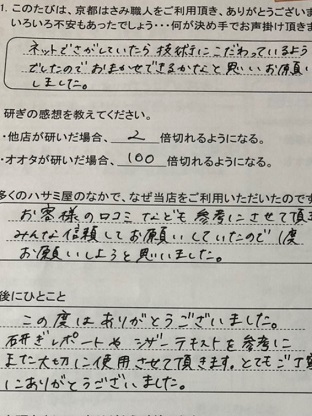 1. このたびは、京都はさみ職人をご利用頂き、ありがとうございま
いろいろ不安もあったでしょう・・・何が決め手でお声掛け頂きま
ネットでさがしていたら技術にこだわっているよう
でしたのでおまかせできるかなと思いお願い
しました。
研ぎの感想を教えてください。
・他店が研いだ場合、2倍切れるようになる。
・オオタが研いだ場合、100倍切れるようになる。
多くのハサミ屋のなかで、なぜ当店をご利用いただいたのです
お客様の口コミなども参考にさせて頂き
みんな信頼してお願いしていたので1度
お願いしようと思いました。
後にひとこと
この度はありがとうございました。
研ぎレポートやシザーテキストを参考に
また大切に使用させて頂きます。とてもご丁寧
にありがとうございました。